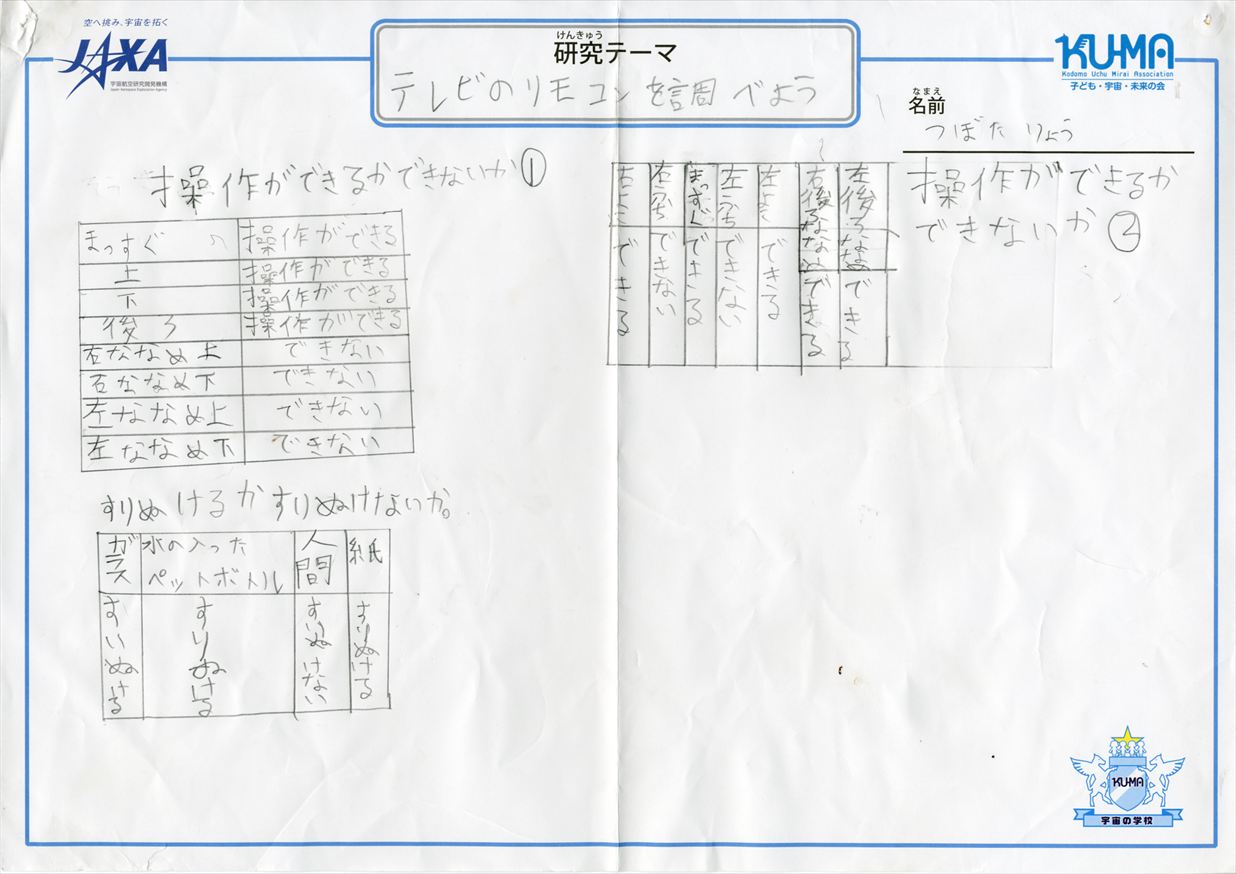 空へ挑み、宇宙を拓く
JAXA
宇宙航空研究開発機構
Japan Aerospace Exploration Agency
けんきゅう
研究テーマ
テレビのリモコンを調べよう
KU-MA
Kodomo Uchu Mirai Association
子ども・宇宙・未来の会
なまえ
名前
つぼた りょう
操作ができるかできないか①
まっすぐ 操作ができる
上 操作ができる
下 操作ができる
後ろ 操作ができる
右ななめ上 できない
右ななめ下 できない
左ななめ上 できない
左ななめ下 できない
すりぬけるかすりぬけないか。
ガラス すいぬける
水の入ったペットボトル すりぬける
人間 すいぬけない
紙 すりぬける
操作ができるか
できないか②
左後ろななめ できる
右後ろななめ できる
左よこ できる
左うち できない
まっすぐ できる
右うち できない
右よこ できる
KU-MA
宇宙の学校